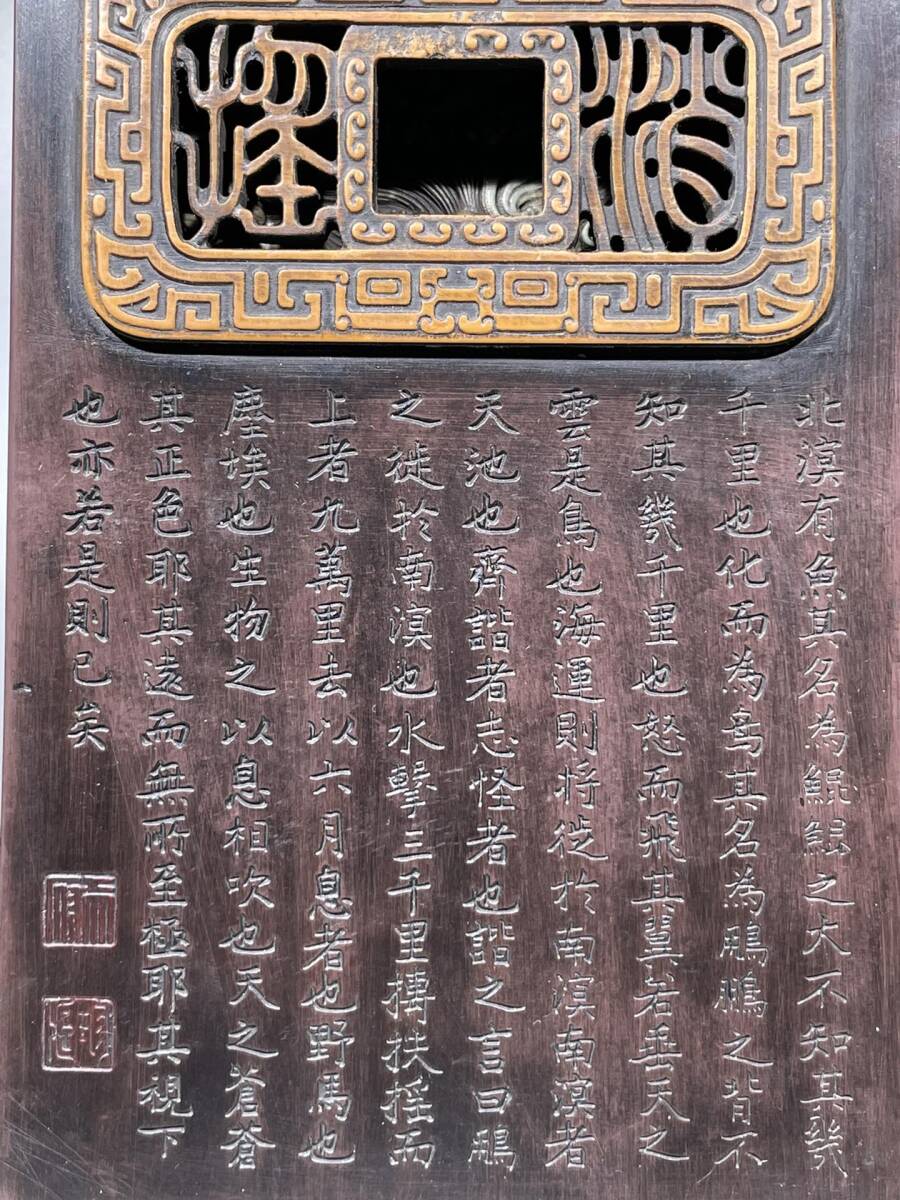 消搖
北溟有魚其名為鯤鯤之大不知其幾
千里也化而為鳥其名為鵬鵬之背不
知其幾千里也怒而飛其翼若垂天之
雲是鳥也海運則將徙於南溟南溟者
天池也齊諧者志怪者也諧之言曰鵬
之徙於南溟也水擊三千里摶扶搖而
上者九萬里去以六月息者也野馬也
塵埃也生物之以息相吹也天之蒼蒼
其正色耶其遠而無所至極耶其視下
也亦若是則已矣